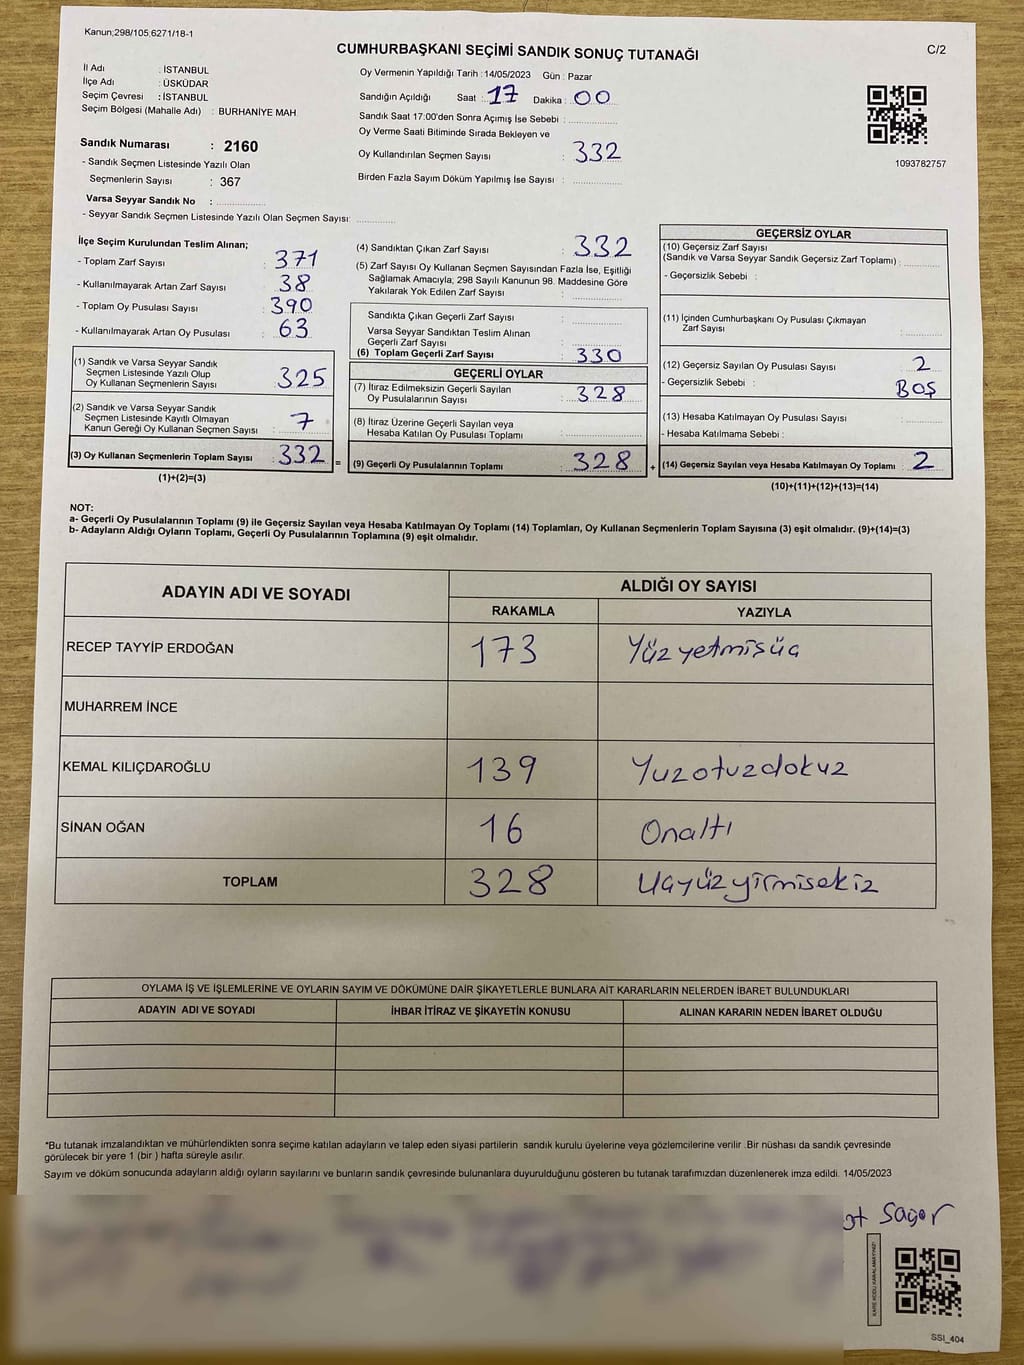 Kanun;298/105,6271/18-1
CUMHURBAŞKANI SEÇİMİ SANDIK SONUÇ TUTANAĞI
C/2
İl Adı : İSTANBUL
İlçe Adı : ÜSKÜDAR
Seçim Çevresi : İSTANBUL
Seçim Bölgesi (Mahalle Adı) : BURHANİYE MAH
Sandık Numarası : 2160
- Sandık Seçmen Listesinde Yazılı Olan
Seçmenlerin Sayısı : 367
Varsa Seyyar Sandık No :
- Seyyar Sandık Seçmen Listesinde Yazılı Olan Seçmen Sayısı:
Oy Vermenin Yapıldığı Tarih : 14/05/2023 Gün : Pazar
Sandığın Açıldığı Saat : 17 Dakika : 00
Sandık Saat 17:00'den Sonra Açımış İse Sebebi :
Oy Verme Saati Bitiminde Sırada Bekleyen ve
Oy Kullandırılan Seçmen Sayısı : 332
Birden Fazla Sayım Döküm Yapılmış İse Sayısı :
1093782757
İlçe Seçim Kurulundan Teslim Alınan;
- Toplam Zarf Sayısı : 371
- Kullanılmayarak Artan Zarf Sayısı : 38
- Toplam Oy Pusulası Sayısı : 390
- Kullanılmayarak Artan Oy Pusulası : 63
(1) Sandık ve Varsa Seyyar Sandık
Seçmen Listesinde Yazılı Olup
Oy Kullanan Seçmenlerin Sayısı : 325
(2) Sandık ve Varsa Seyyar Sandık
Seçmen Listesinde Kayıtlı Olmayan
Kanun Gereği Oy Kullanan Seçmen Sayısı : 7
(3) Oy Kullanan Seçmenlerin Toplam Sayısı : 332 =
(1)+(2)=(3)
(4) Sandıktan Çıkan Zarf Sayısı : 332
(5) Zarf Sayısı Oy Kullanan Seçmen Sayısından Fazla İse, Eşitliği
Sağlamak Amacıyla, 298 Sayılı Kanunun 98. Maddesine Göre
Yakılarak Yok Edilen Zarf Sayısı :
Sandıkta Çıkan Geçerli Zarf Sayısı :
Varsa Seyyar Sandıktan Teslim Alınan
Geçerli Zarf Sayısı :
(6) Toplam Geçerli Zarf Sayısı : 330
GEÇERLİ OYLAR
(7) İtiraz Edilmeksizin Geçerli Sayılan
Oy Pusulalarının Sayısı : 328
(8) İtiraz Üzerine Geçerli Sayılan veya
Hesaba Katılan Oy Pusulası Toplamı :
(9) Geçerli Oy Pusulalarının Toplamı : 328 +
GEÇERSİZ OYLAR
(10) Geçersiz Zarf Sayısı
(Sandık ve Varsa Seyyar Sandık Geçersiz Zarf Toplamı) :
- Geçersizlik Sebebi :
(11) İçinden Cumhurbaşkanı Oy Pusulası Çıkmayan
Zarf Sayısı :
(12) Geçersiz Sayılan Oy Pusulası Sayısı : 2
- Geçersizlik Sebebi : BOŞ
(13) Hesaba Katılmayan Oy Pusulası Sayısı :
- Hesaba Katılmama Sebebi :
(14) Geçersiz Sayılan veya Hesaba Katılmayan Oy Toplamı : 2
(10)+(11)+(12)+(13)=(14)
NOT:
a- Geçerli Oy Pusulalarının Toplamı (9) ile Geçersiz Sayılan veya Hesaba Katılmayan Oy Toplamı (14) Toplamları, Oy Kullanan Seçmenlerin Toplam Sayısına (3) eşit olmalıdır. (9)+(14)=(3)
b- Adayların Aldığı Oyların Toplamı, Geçerli Oy Pusulalarının Toplamına (9) eşit olmalıdır.
ADAYIN ADI VE SOYADI ALDIĞI OY SAYISI
RAKAMLA YAZIYLA
RECEP TAYYİP ERDOĞAN 173 Yüz yetmişüç
MUHARREM İNCE
KEMAL KILIÇDAROĞLU 139 Yuzotuzdokuz
SİNAN OĞAN 16 Onaltı
TOPLAM 328 Üçyüzyirmisekiz
OYLAMA İŞ VE İŞLEMLERİNE VE OYLARIN SAYIM VE DÖKÜMÜNE DAİR ŞİKAYETLERLE BUNLARA AİT KARARLARIN NELERDEN İBARET BULUNDUKLARI
ADAYIN ADI VE SOYADI İHBAR İTİRAZ VE ŞİKAYETİN KONUSU ALINAN KARARIN NEDEN İBARET OLDUĞU
*Bu tutanak imzalandıktan ve mühürlendikten sonra seçime katılan adayların ve talep eden siyasi partilerin sandık kurulu üyelerine veya gözlemcilerine verilir .Bir nüshası da sandık çevresinde
görülecek bir yere 1 (bir ) hafta süreyle asılır.
Sayım ve döküm sonucunda adayların aldığı oyların sayılarını ve bunların sandık çevresinde bulunanlara duyurulduğunu gösteren bu tutanak tarafımızdan düzenlenerek imza edildi. 14/05/2023
KARE KODU KARALAMAYINIZ!
SSI_404